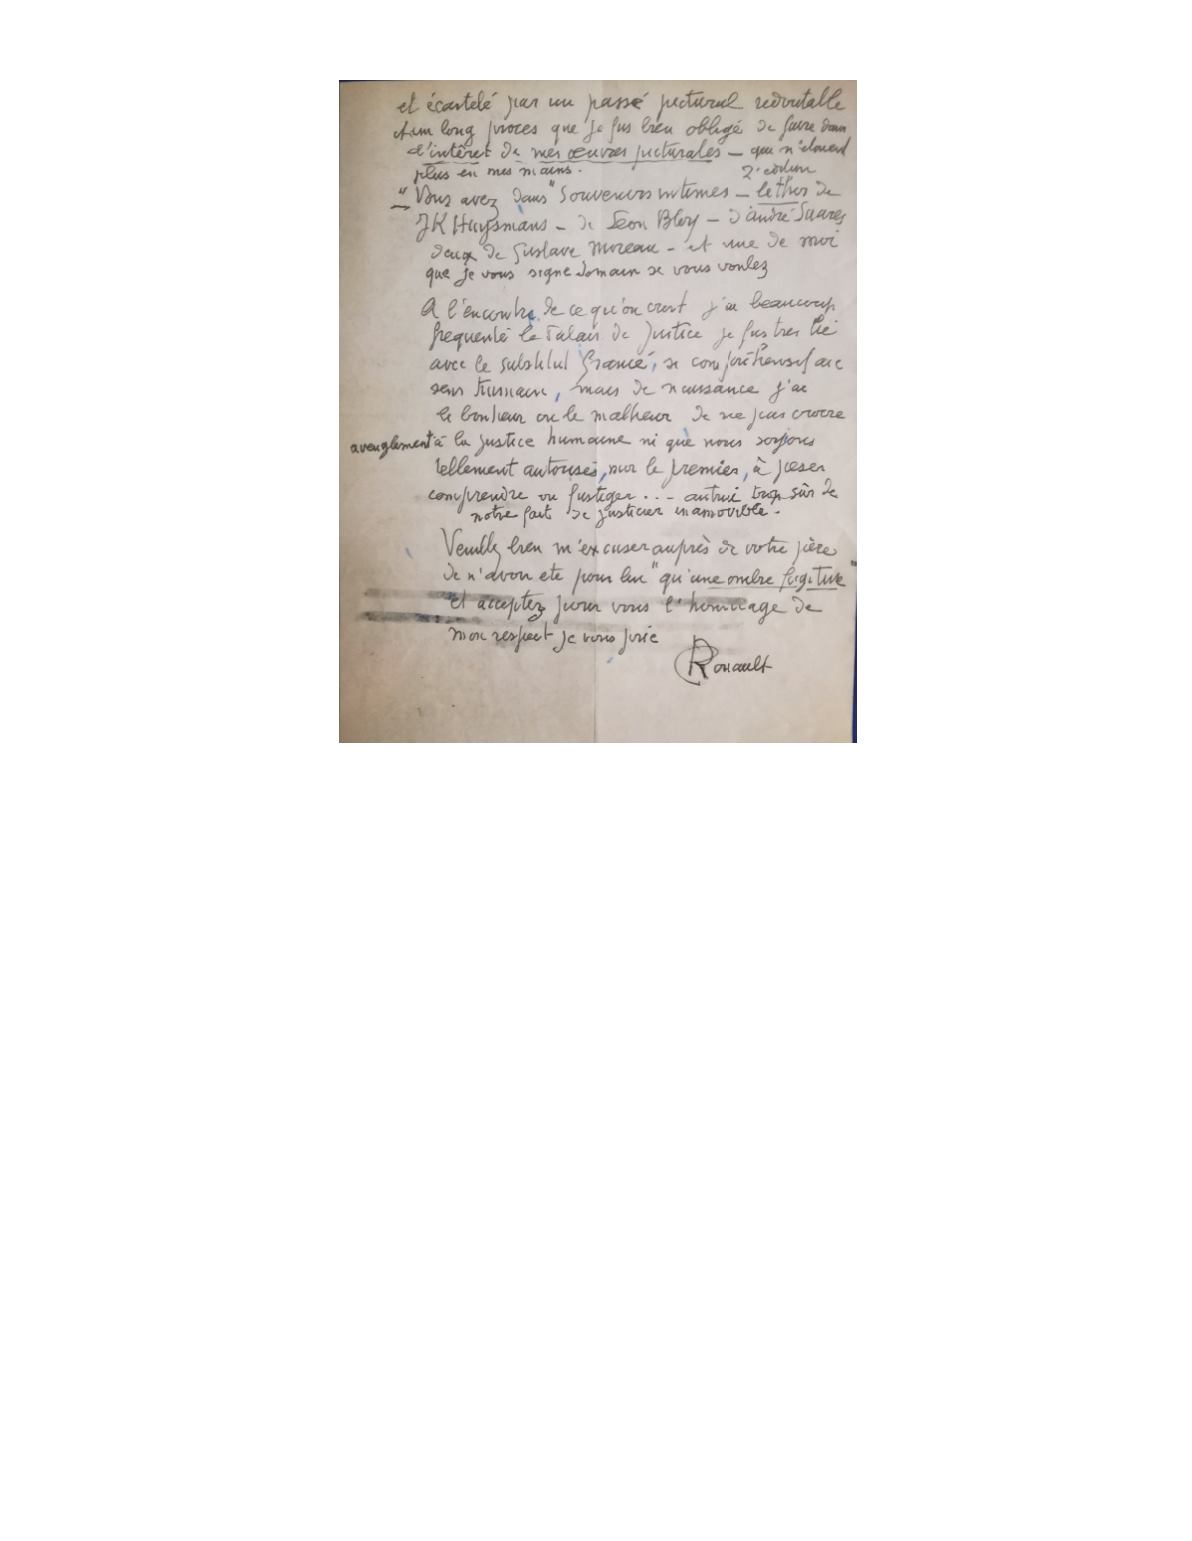 et écartelé par un passé pictural redoutable
et un long proces que je fus bien obligé de faire dans
l'intérêt de mes œuvres picturales — qui n'étaient
plus en mes mains.
2e edition
" Vous avez dans "Souvenirs intimes — lettres de
JK Huysmans — de Léon Bloy — d'andré Suares
deux de Gustave Moreau — et une de moi
que je vous signe demain se vous voulez
A l'encontre de ce qu'on croit j'ai beaucoup
frequenté le Palais de Justice je fus tres lié
avec le substitut Granié, si compréhensif avec
sens humain, mais de naissance j'ai
le bonheur ou le malheur de ne pas croire
aveuglement à la justice humaine ni que nous soyons
tellement autorisés, moi le premier, à peser
comprendre ou fustiger ... autrui trop sûr de
notre fait de justicier inamovible.
Veuillez bien m'excuser auprès de votre père
de n'avoir ete pour lui "qu'une ombre fugitive"
et acceptez pour vous l'hommage de
mon respect je vous prie
GRouault